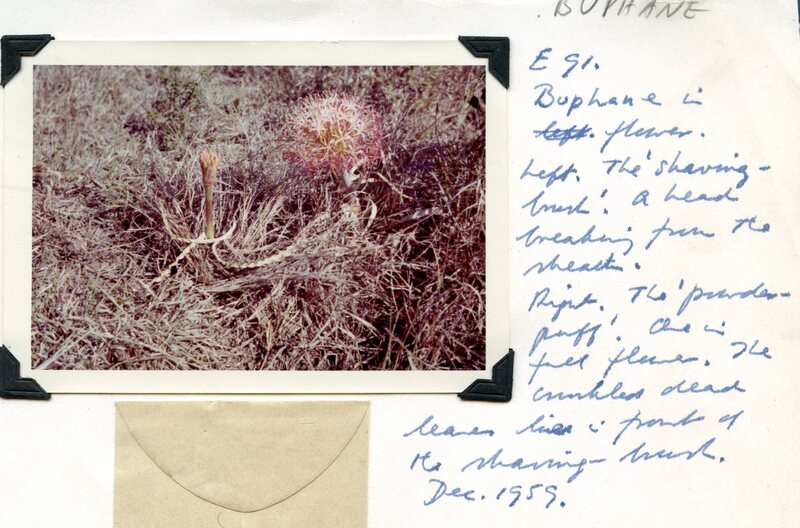 BUPHANE
E 91.
Buphane in
left. flower.
Left. The 'shaving-
brush'. A head
breaking from the
sheath.
Right. The 'powder-
puff'. One in
full flower. The
crumbled dead
leaves lie in front of
the shaving-brush.
Dec. 1959.